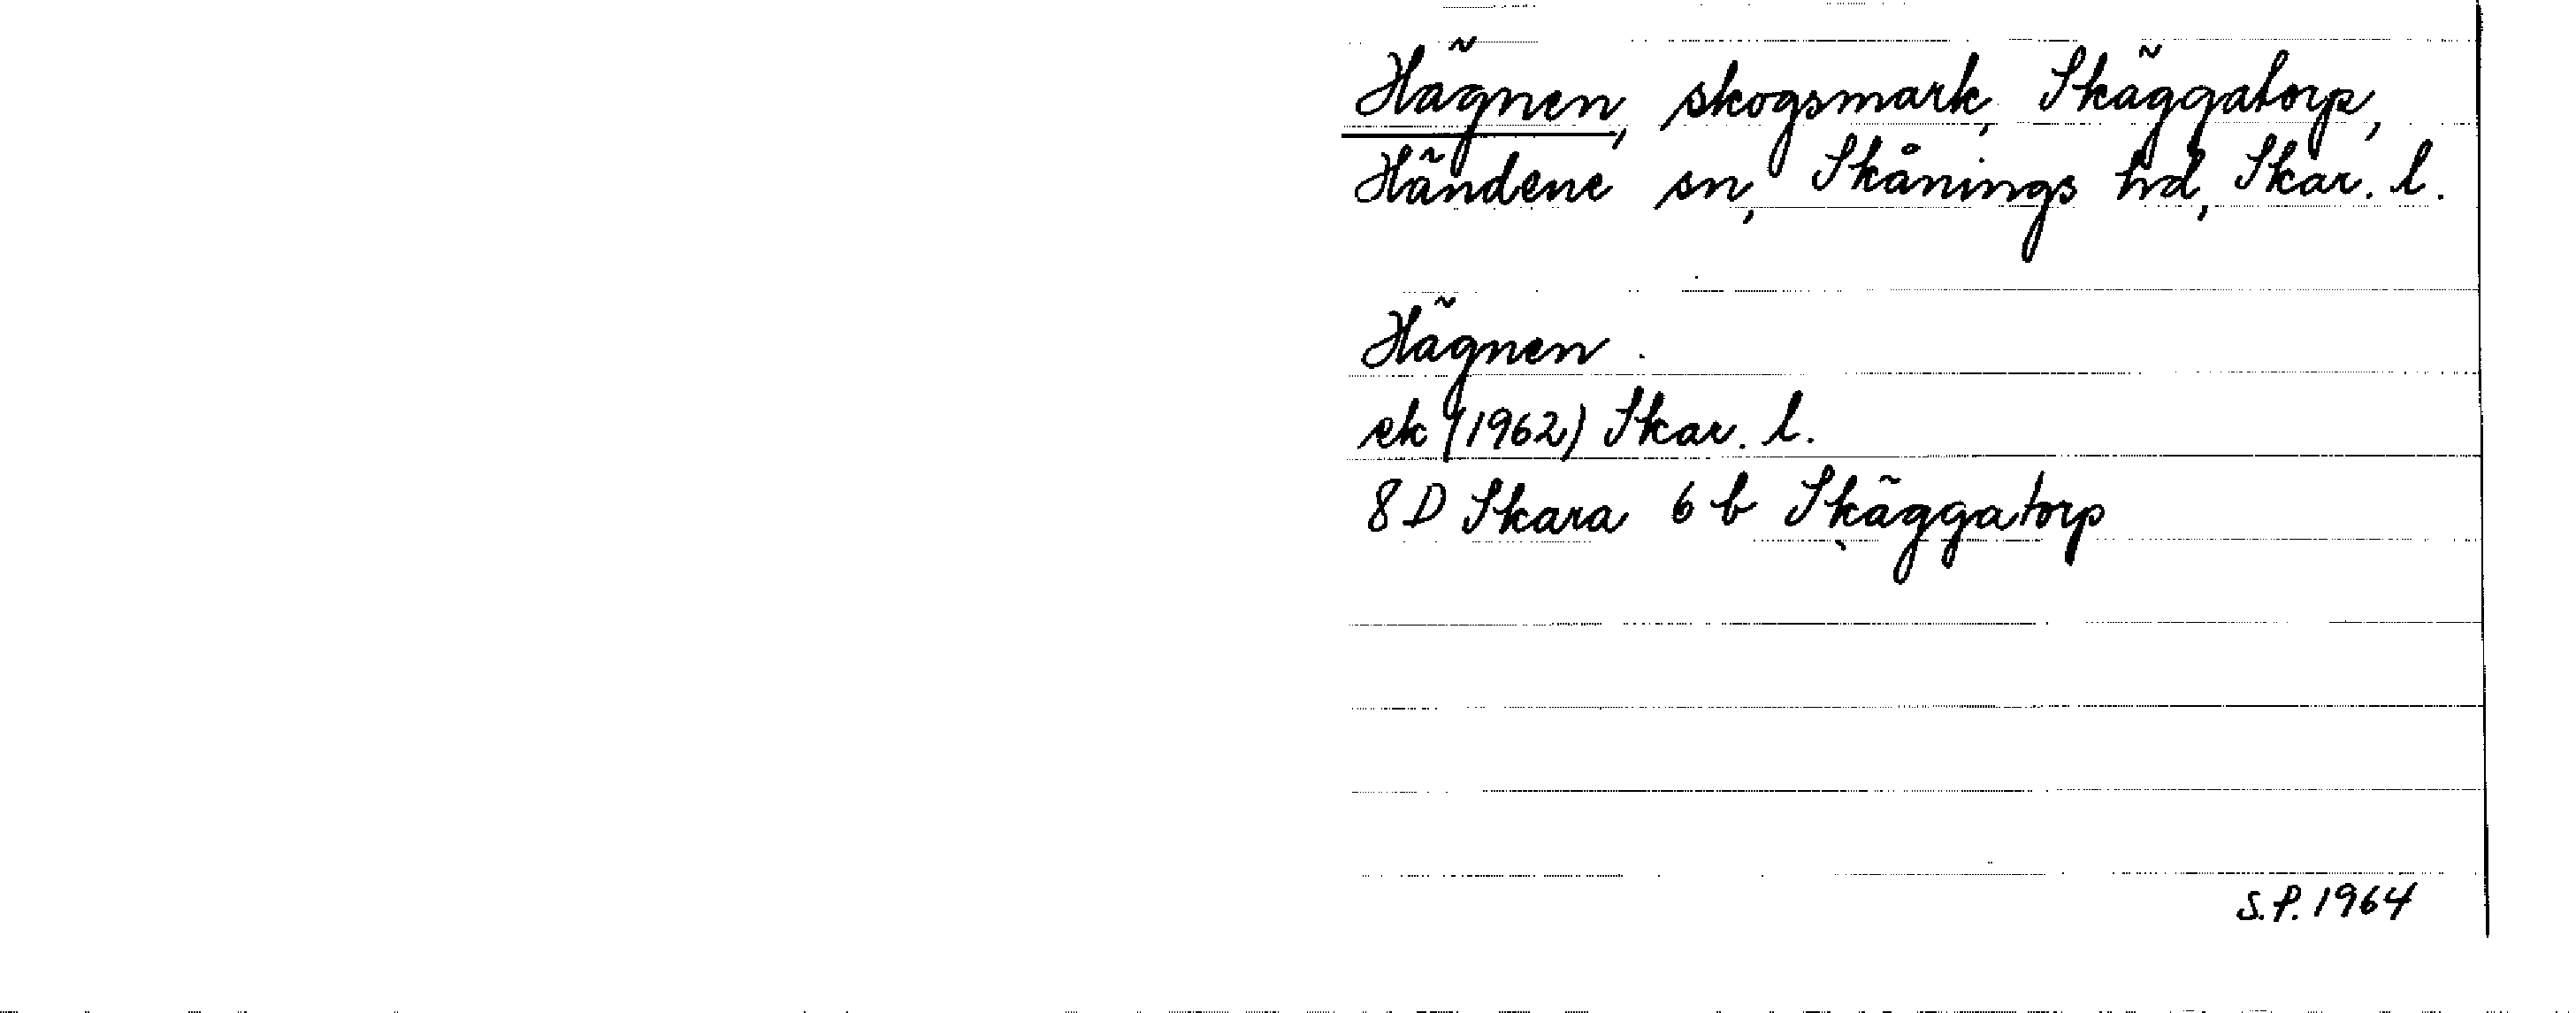 Hägnen, skogsmark, Skäggatorp,
Händene sn, Skånings hd, Skar. l.
Hägnen
ek (1962) Skar. l.
8 D Skara 6 b Skäggatorp
S.P. 1964